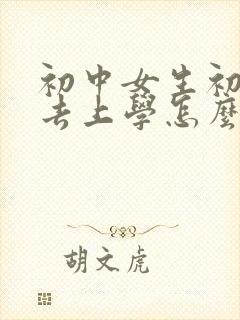 初中女生初
去上學怎麼
胡文虎